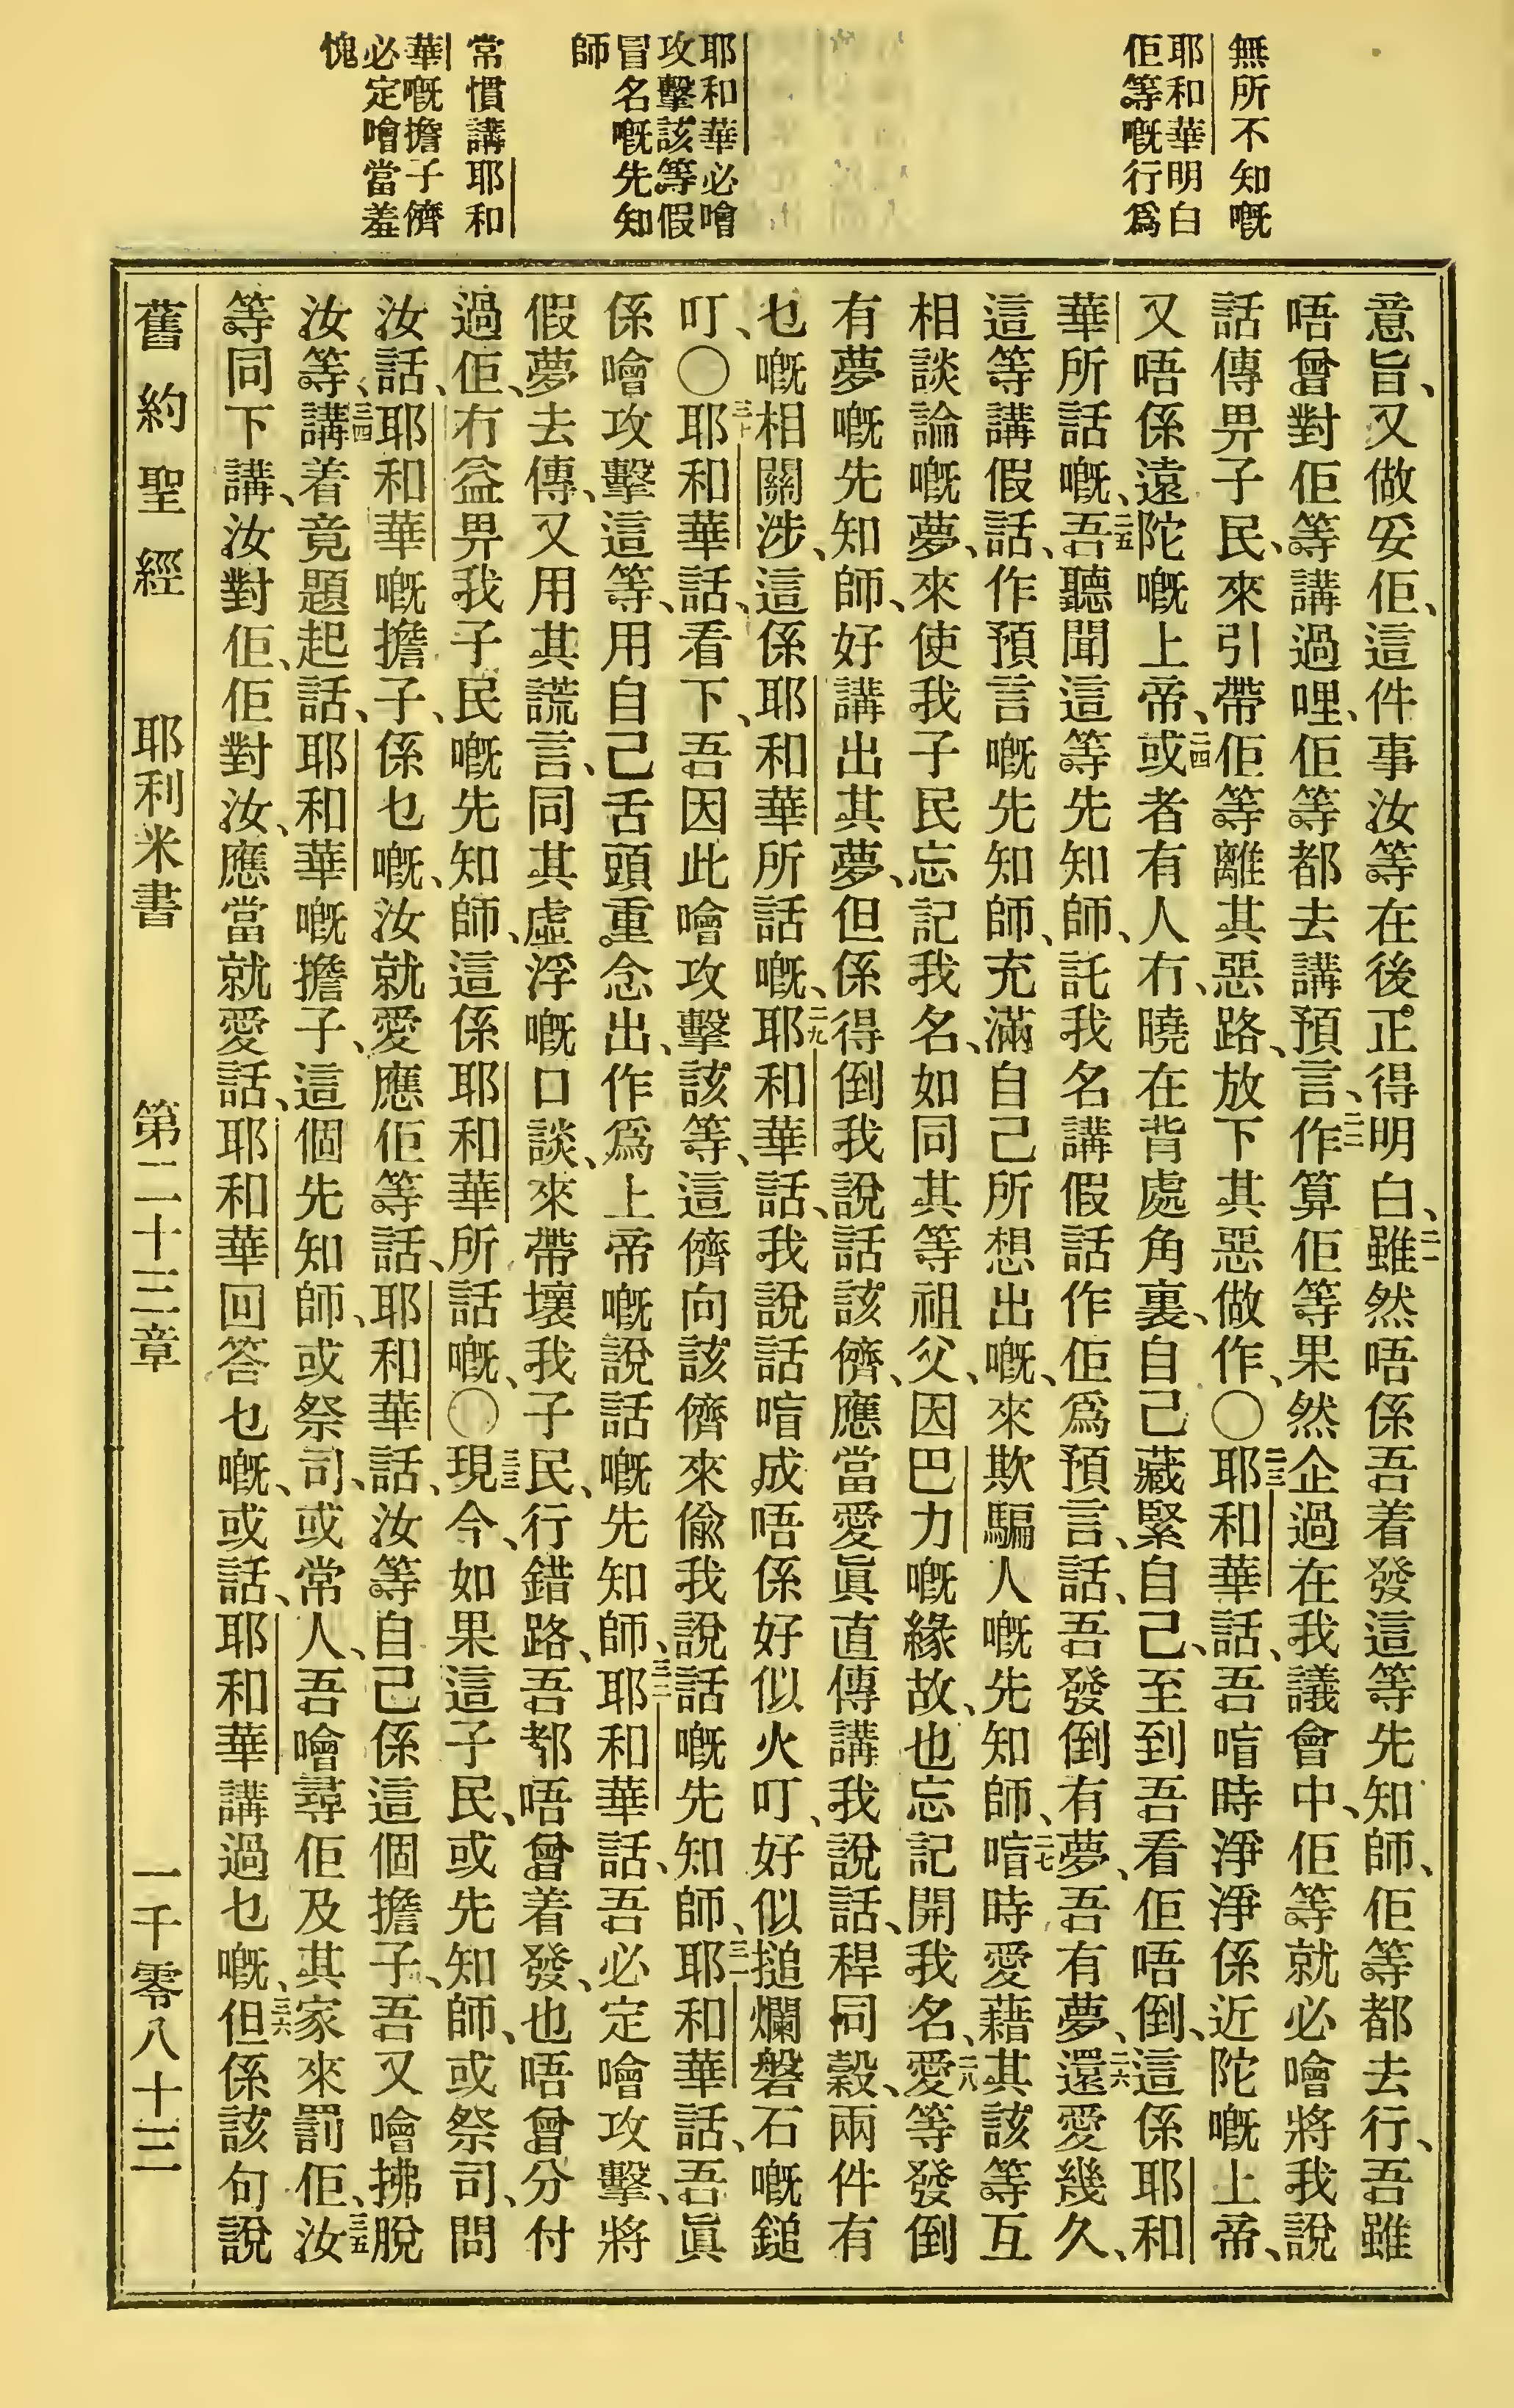 無所不知嘅
耶和華明白
佢等嘅行爲
耶和華必噲
攻擊該等假
冒名嘅先知
師
常慣講耶和
華嘅擔子儕
必定噲當羞
愧
意旨、又做妥佢、這件事汝等在後正得明白、二一雖然唔係吾着發這等先知師、佢等都去行、吾雖
唔曾對佢等講過哩、佢等都去講預言、二二作算佢等果然企過在我議會中、佢等就必噲將我說
話傳畀子民、來引帶佢等離其惡路、放下其惡做作、〇二三耶和華話、吾喑時淨淨係近陀嘅上帝、
又唔係遠陀嘅上帝、二四或者有人冇、曉在背處角裏、自己藏緊自己、至到吾看佢唔倒、這係耶和
華所話嘅、二五吾聽聞這等先知師、託我名講假話作佢爲預言、話、吾發倒有夢、吾有夢、二六還愛幾久、
這等講假話、作預言嘅先知師、充滿自己所想出嘅、來欺騙人嘅先知師、二七喑時愛藉其該等互
相談論嘅夢、來使我子民忘記我名、如同其等祖父、因巴力嘅緣故、也忘記開我名、二八愛等發倒
有夢嘅先知師、好講出其夢、但係得倒我說話該儕、應當愛眞直傳講我說話、稈同穀、兩件有
乜嘅相關涉、這係耶和華所話嘅、二九耶和華話、我說話喑成唔係好似火叮、好似搥爛磐石嘅鎚
叮、〇三十耶和華話、看下、吾因此噲攻擊該等、這儕向該儕來偸我說話嘅先知師、三一耶和華話、吾眞
係噲攻擊這等、用自己舌頭重念出、作爲上帝嘅說話嘅先知師、三二耶和華話、吾必定噲攻擊、將
假夢去傳、又用其謊言、同其虛浮嘅口談、來帶壞我子民、行錯路、吾都唔曾着發、也唔曾分付
過佢、冇益畀我子民嘅先知師、這係耶和華所話嘅、〇三三現今、如果這子民、或先知師、或祭司、問
汝話、耶和華嘅擔子、係乜嘅、汝就愛應佢等話、耶和華話、汝等自己係這個擔子、吾又噲拂脫
汝等、三四講着竟題起話、耶和華嘅擔子、這個先知師、或祭司、或常人、吾噲尋佢及其家來罰佢、三五汝
等同下講、汝對佢、佢對汝、應當就愛話、耶和華回答乜嘅、或話、耶和華講過乜嘅、三六但係該句說
舊約聖經　耶利米書　第二十三章　一千零八十三